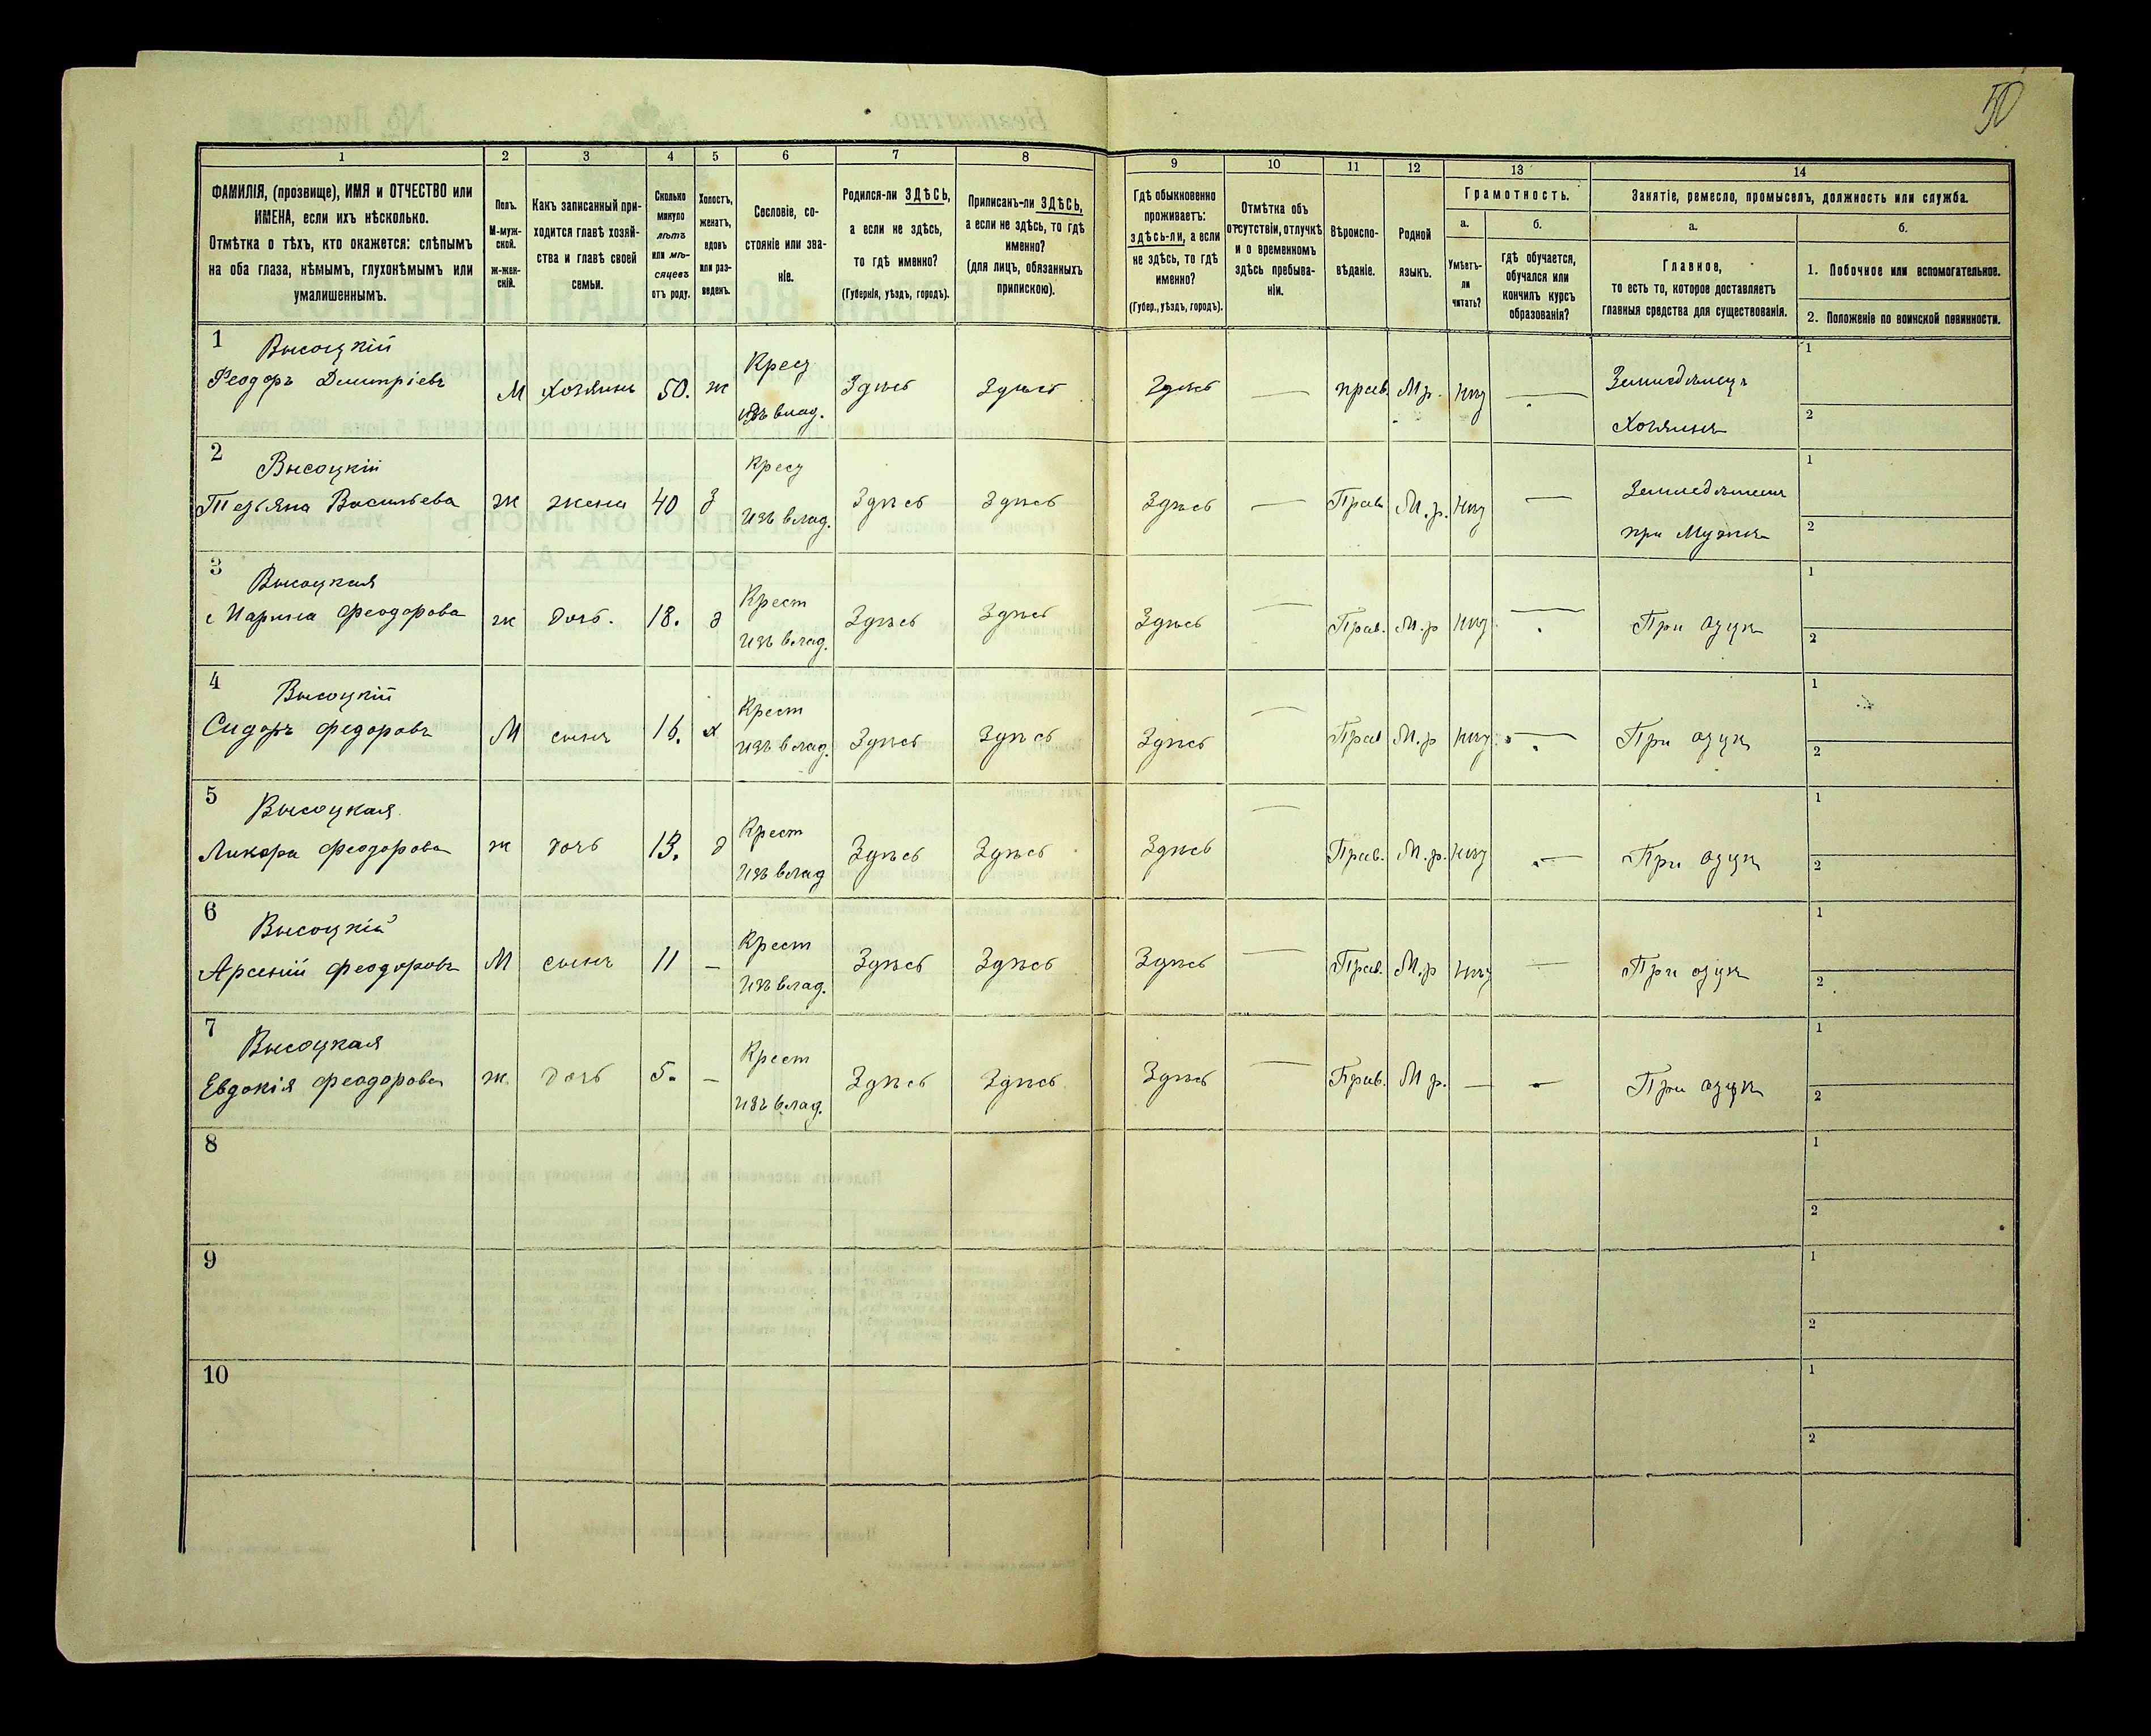 50
1 2 3 4 5 6 7 8 9 10 11 12 13 14
ФАМИЛІЯ, (прозвище), ИМЯ и ОТЧЕСТВО или
ИМЕНА, если ихъ нѣсколько.
Отмѣтка о тѣхъ, кто окажется: слѣпымъ
на оба глаза, нѣмымъ, глухонѣмымъ или
умалишеннымъ.
Полъ.
М-муж-
ской.
Ж-жен-
скій.
Какъ записанный при-
ходится главѣ хозяй-
ства и главѣ своей
семьи.
Сколько
минуло
лѣтъ
или мѣ-
сяцевъ
отъ роду.
Холостъ,
женатъ,
вдовъ
или раз-
веденъ.
Сословіе, со-
стояніе или зва-
ніе.
Родился-ли ЗДѢСЬ,
а если не здѣсь,
то гдѣ именно?
(Губернія, уѣздъ, городъ).
Приписанъ-ли ЗДѢСЬ,
а если не здѣсь, то гдѣ
именно?
(для лицъ, обязанныхъ
припискою).
Гдѣ обыкновенно
проживаетъ:
здѣсь-ли, а если
не здѣсь, то гдѣ
именно?
(Губер., уѣздъ, городъ).
Отмѣтка объ
отсутствіи, отлучкѣ
и о временномъ
здѣсь пребыва-
ніи.
Вѣроиспо-
вѣданіе.
Родной
языкъ.
Грамотность.
а.
Умѣетъ-
ли
читать?
б.
гдѣ обучается,
обучался или
кончилъ курсъ
образованія?
Занятіе, ремесло, промыселъ, должность или служба.
а.
Главное,
то есть то, которое доставляетъ
главныя средства для существованія.
б.
1. Побочное или вспомогательное.
2. Положеніе по воинской повинности.
1 Высоцкій Крес Земледѣлецъ 1
Феодоръ Димитріевъ М Хозяинъ 50. ж изъ влад. Здѣсь Здѣсь Здѣсь — прав. М р. нѣт — Хозяинъ 2
2 Высоцкій Крес Земледѣлие 1
Татьяна Васильева ж жена 40 з изъ влад. Здѣсь Здѣсь Здѣсь — Прав М.р. нѣт — при Мужѣ 2
3 Высоцкая Крест 1
Марина Феодорова ж дочь. 18. д изъ влад. Здѣсь Здѣсь Здѣсь — Прав. М.р нѣт — При отцѣ 2
4 Высоцкій Крест 1
Сидоръ Федоровъ М сынъ 16. х изъ влад. Здѣсь Здѣсь Здѣсь — Прав М.р нѣт — При отцѣ 2
5 Высоцкая Крест 1
Феодорова ж дочь 13. д изъ влад Здѣсь Здѣсь Здѣсь — Прав. М.р. нѣт — При отцѣ 2
6 Высоцкій Крест 1
Арсеній Феодоровъ М сынъ 11 — изъ влад. Здѣсь Здѣсь Здѣсь — Прав. М.р нѣт — При отцѣ 2
7 Высоцкая Крест 1
Евдокія Феодорова ж. дочь 5. — изъ влад. Здѣсь Здѣсь Здѣсь — Прав. М р. — — При отцѣ 2
8 1
2
9 1
2
10 1
2